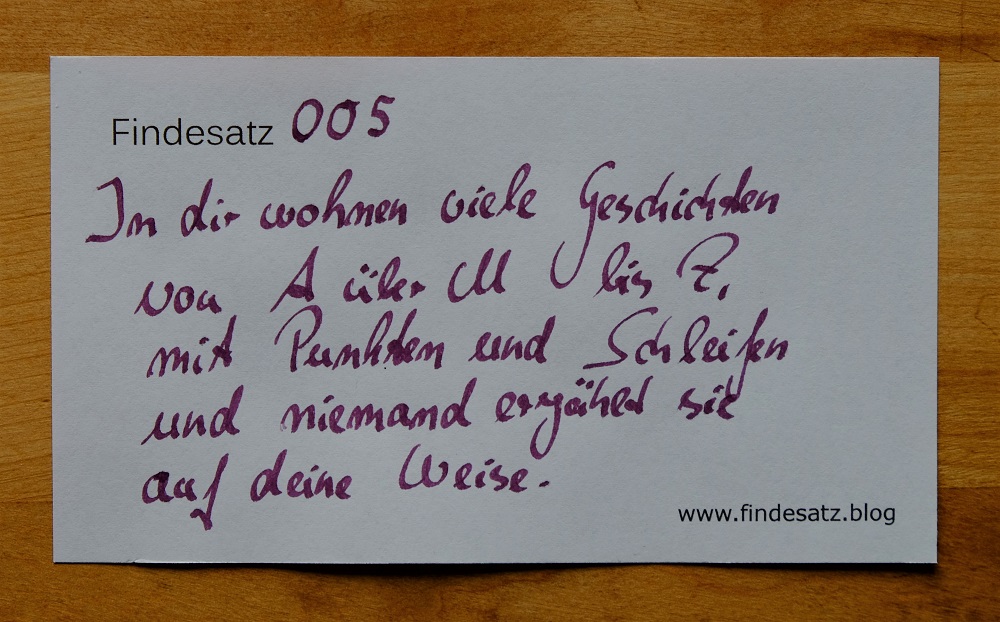 Findesatz 005
In dir wohnen viele Geschichten
von A über M bis Z,
mit Punkten und Schleifen
und niemand erzählt sie
auf deine Weise.
www.findesatz.blog